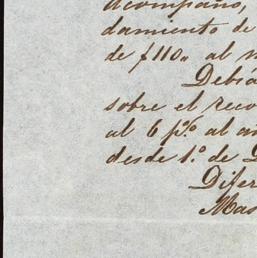 acompaño,
damiento de
de f 110,, al m
Debia
sobre el reco
al 6 p% al añ
desde 1.º de
Difer
Mas